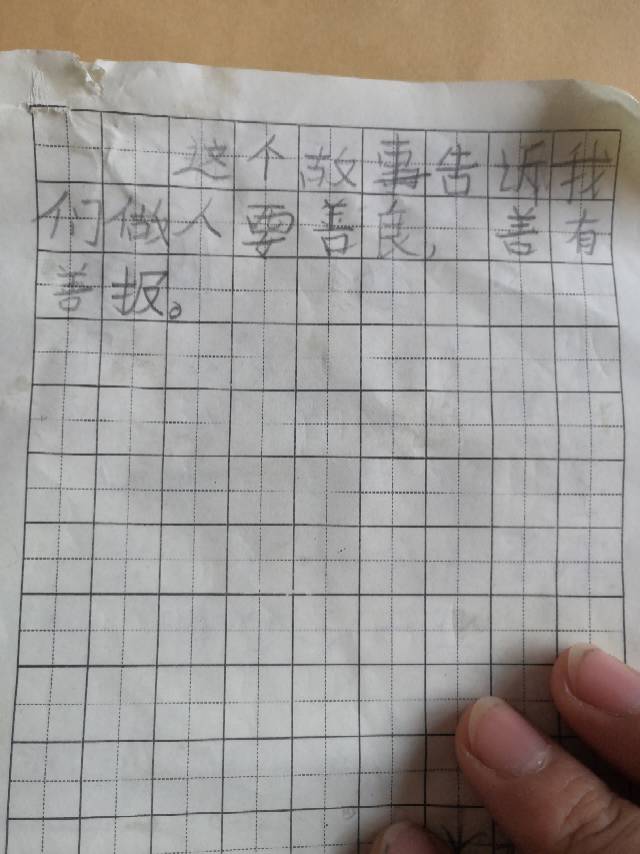 这个故事告诉我
们做人要善良，善有
善报。